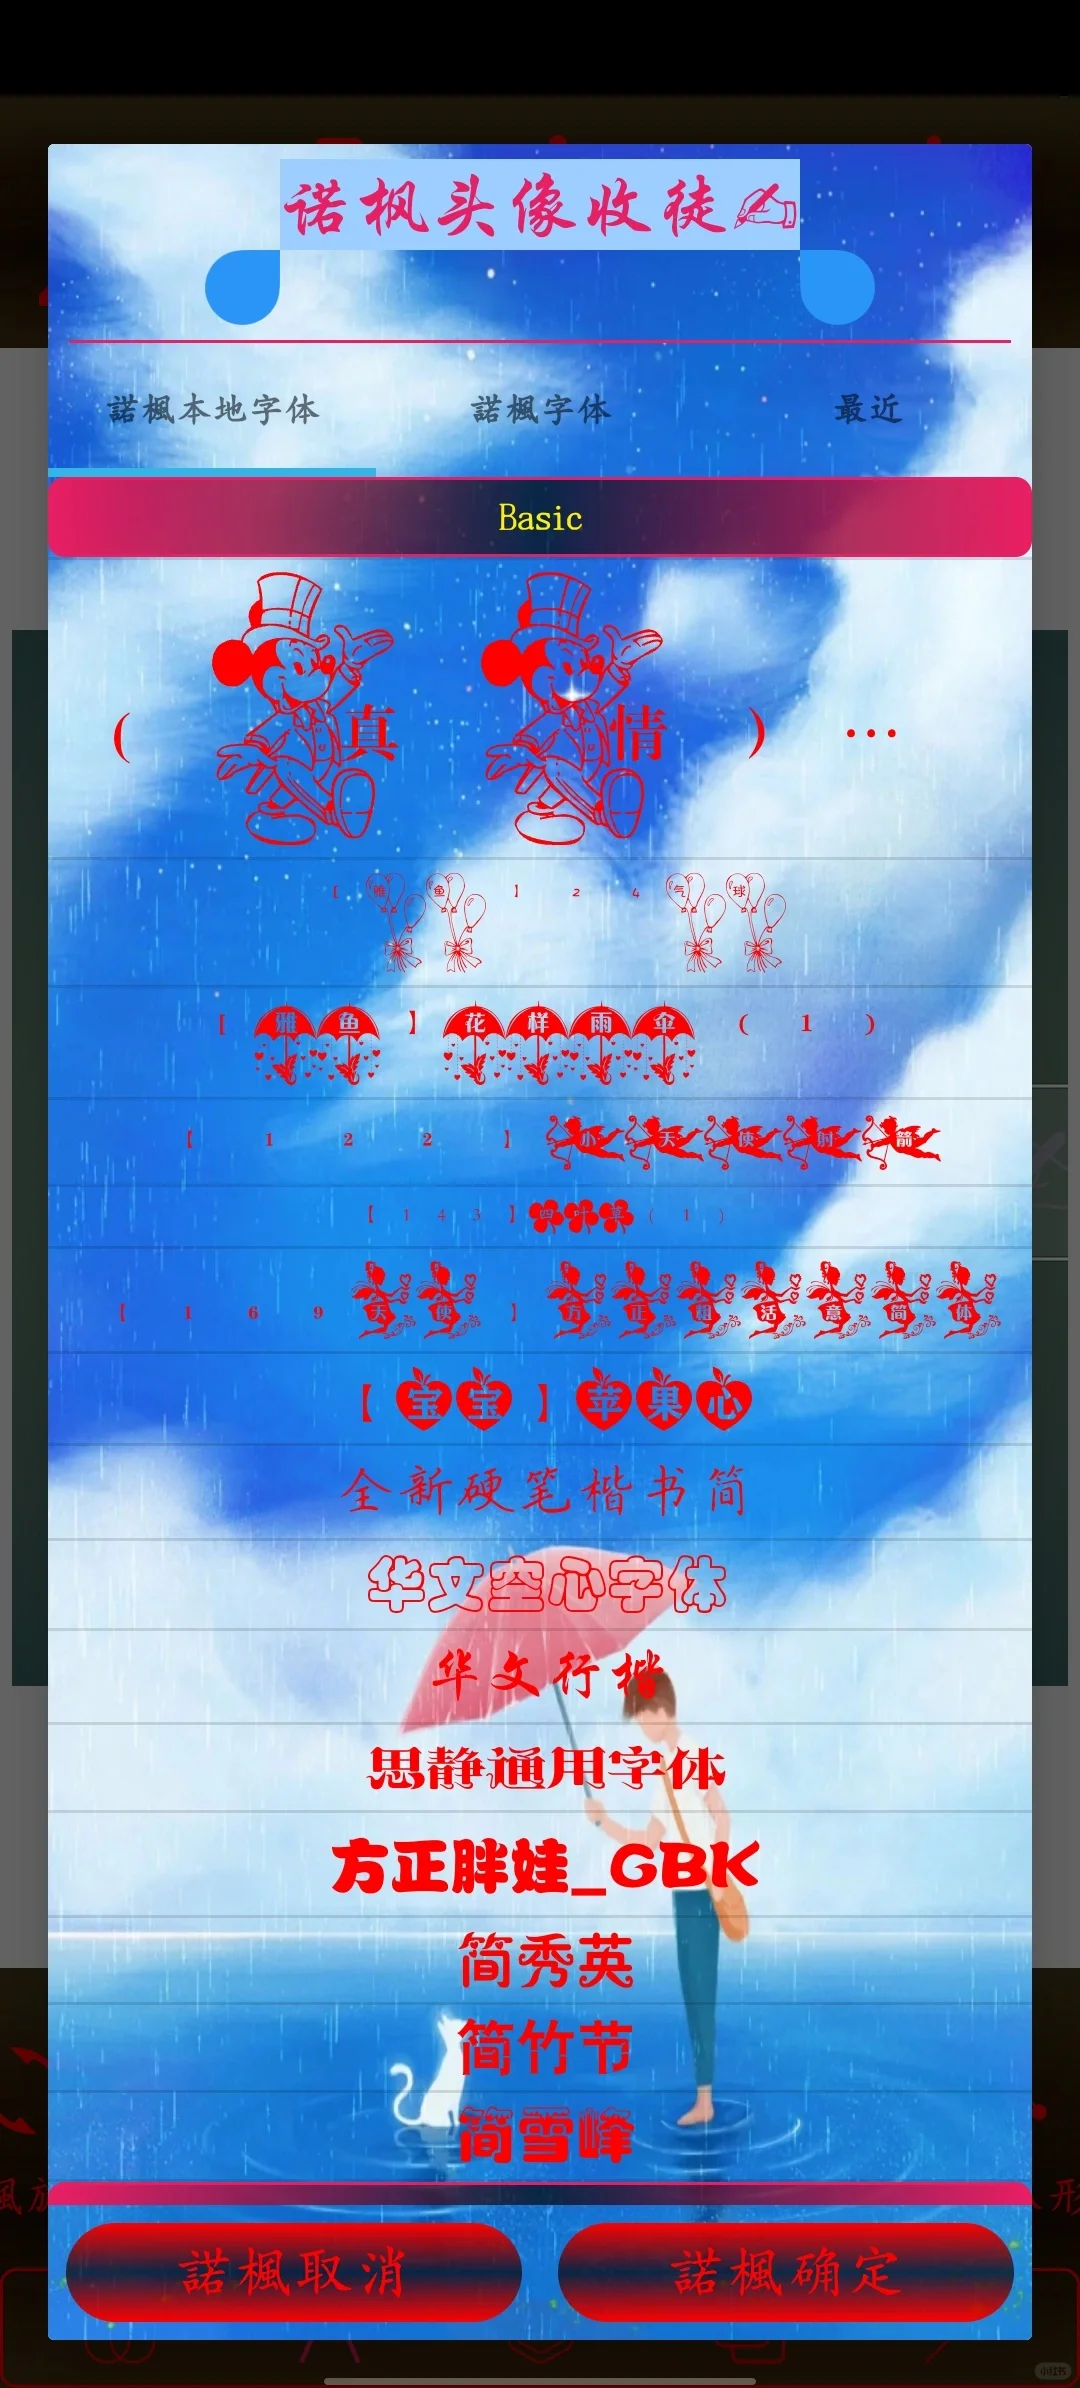 诺枫头像收徒✍
諾楓本地字体 諾楓字体 最近
Basic
(真情)…
[雅鱼】24气球
[雅鱼】花样雨伞(1)
【122】小天使射箭
【143】四叶草(1)
【169天使】方正粗活意简体
【宝宝】苹果心
全新硬笔楷书简
华文空心字体
华文行楷
思静通用字体
方正胖娃_GBK
简秀英
简竹节
简雪峰
諾楓取消 諾楓确定
小红书